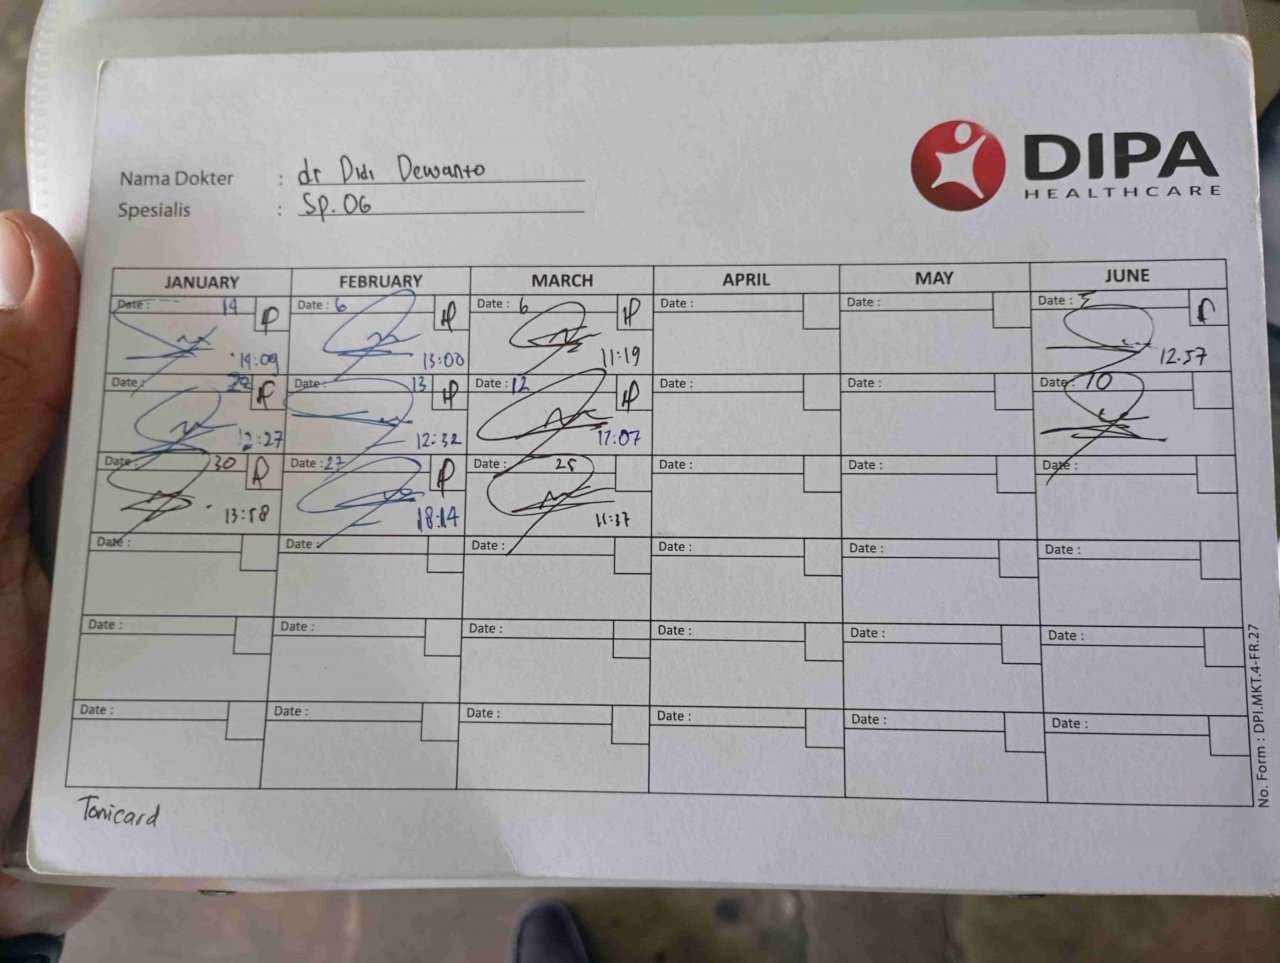 DIPA
HEALTHCARE
Nama Dokter : dr Didi Dewanto
Spesialis : Sp. OG
JANUARY FEBRUARY MARCH APRIL MAY JUNE
Date : 14 Date : 6 Date : 6 Date : Date : Date :
14:09 13:00 11:19 12.57
Date : 22 Date : 13 Date : 12 Date : Date : Date : 10
12:27 12:32 17:07
Date : 30 Date : 27 Date : 25 Date : Date : Date :
13:58 18:14 11:37
Date : Date : Date : Date : Date : Date :
Date : Date : Date : Date : Date : Date :
Date : Date : Date : Date : Date : Date :
Tonicard
No. Form : DPI.MKT.4-FR.27